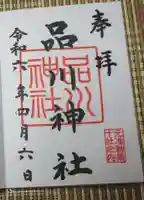 奉拝
品川神社
令和六年四月六日
品川神社